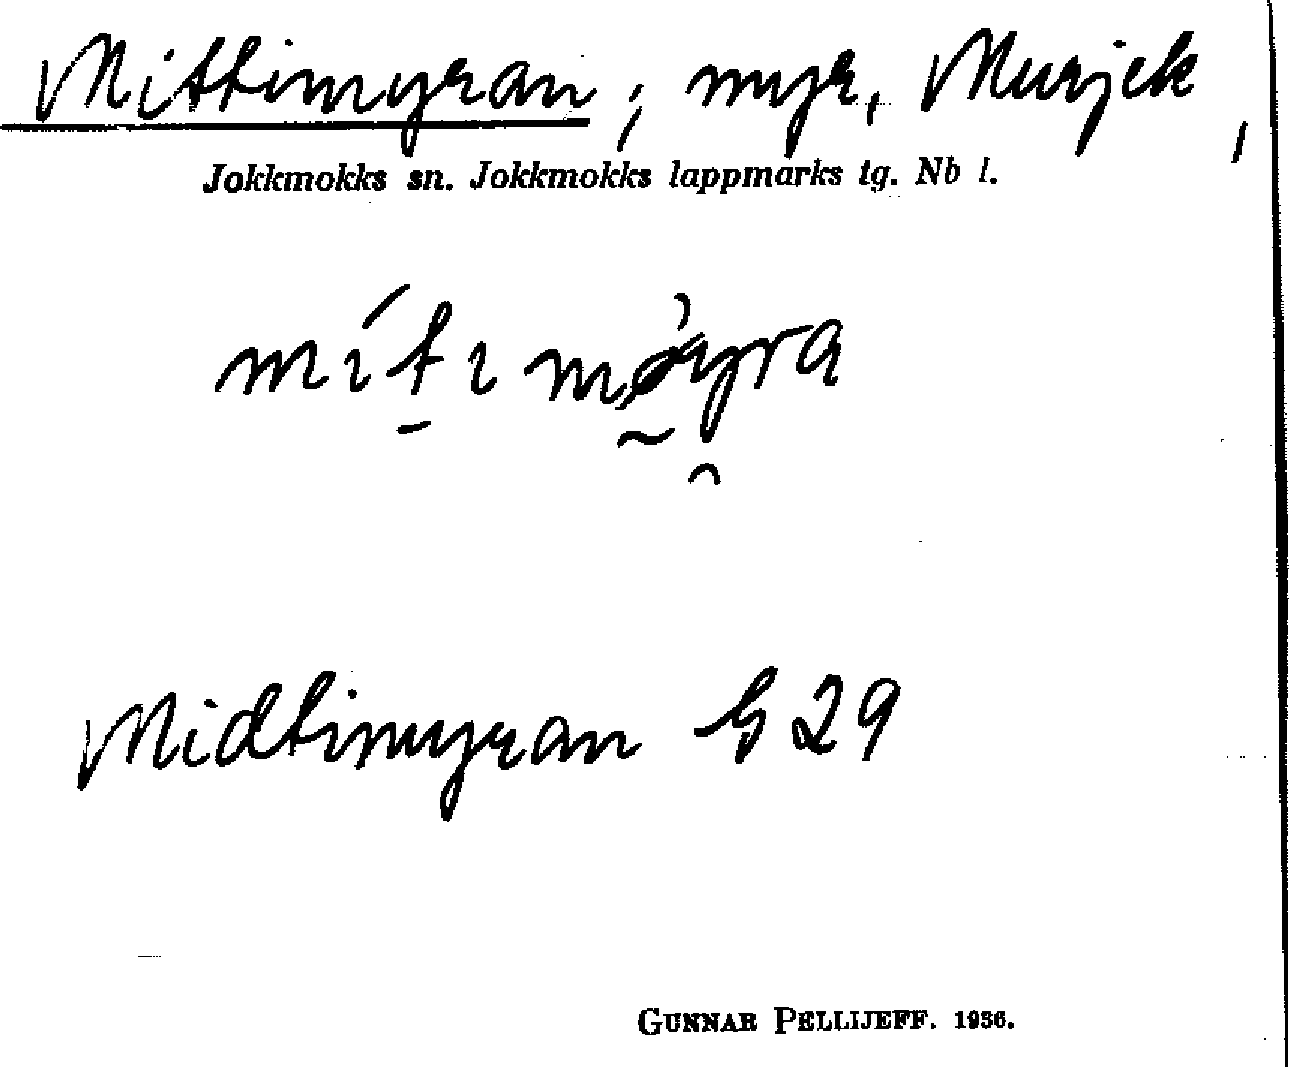 Mittimyran; myr, Murjek,
Jokkmokks sn. Jokkmokks lappmarks tg. Nb l.
Midtimyran G 29
GUNNAR PELLIJEFF. 1936.